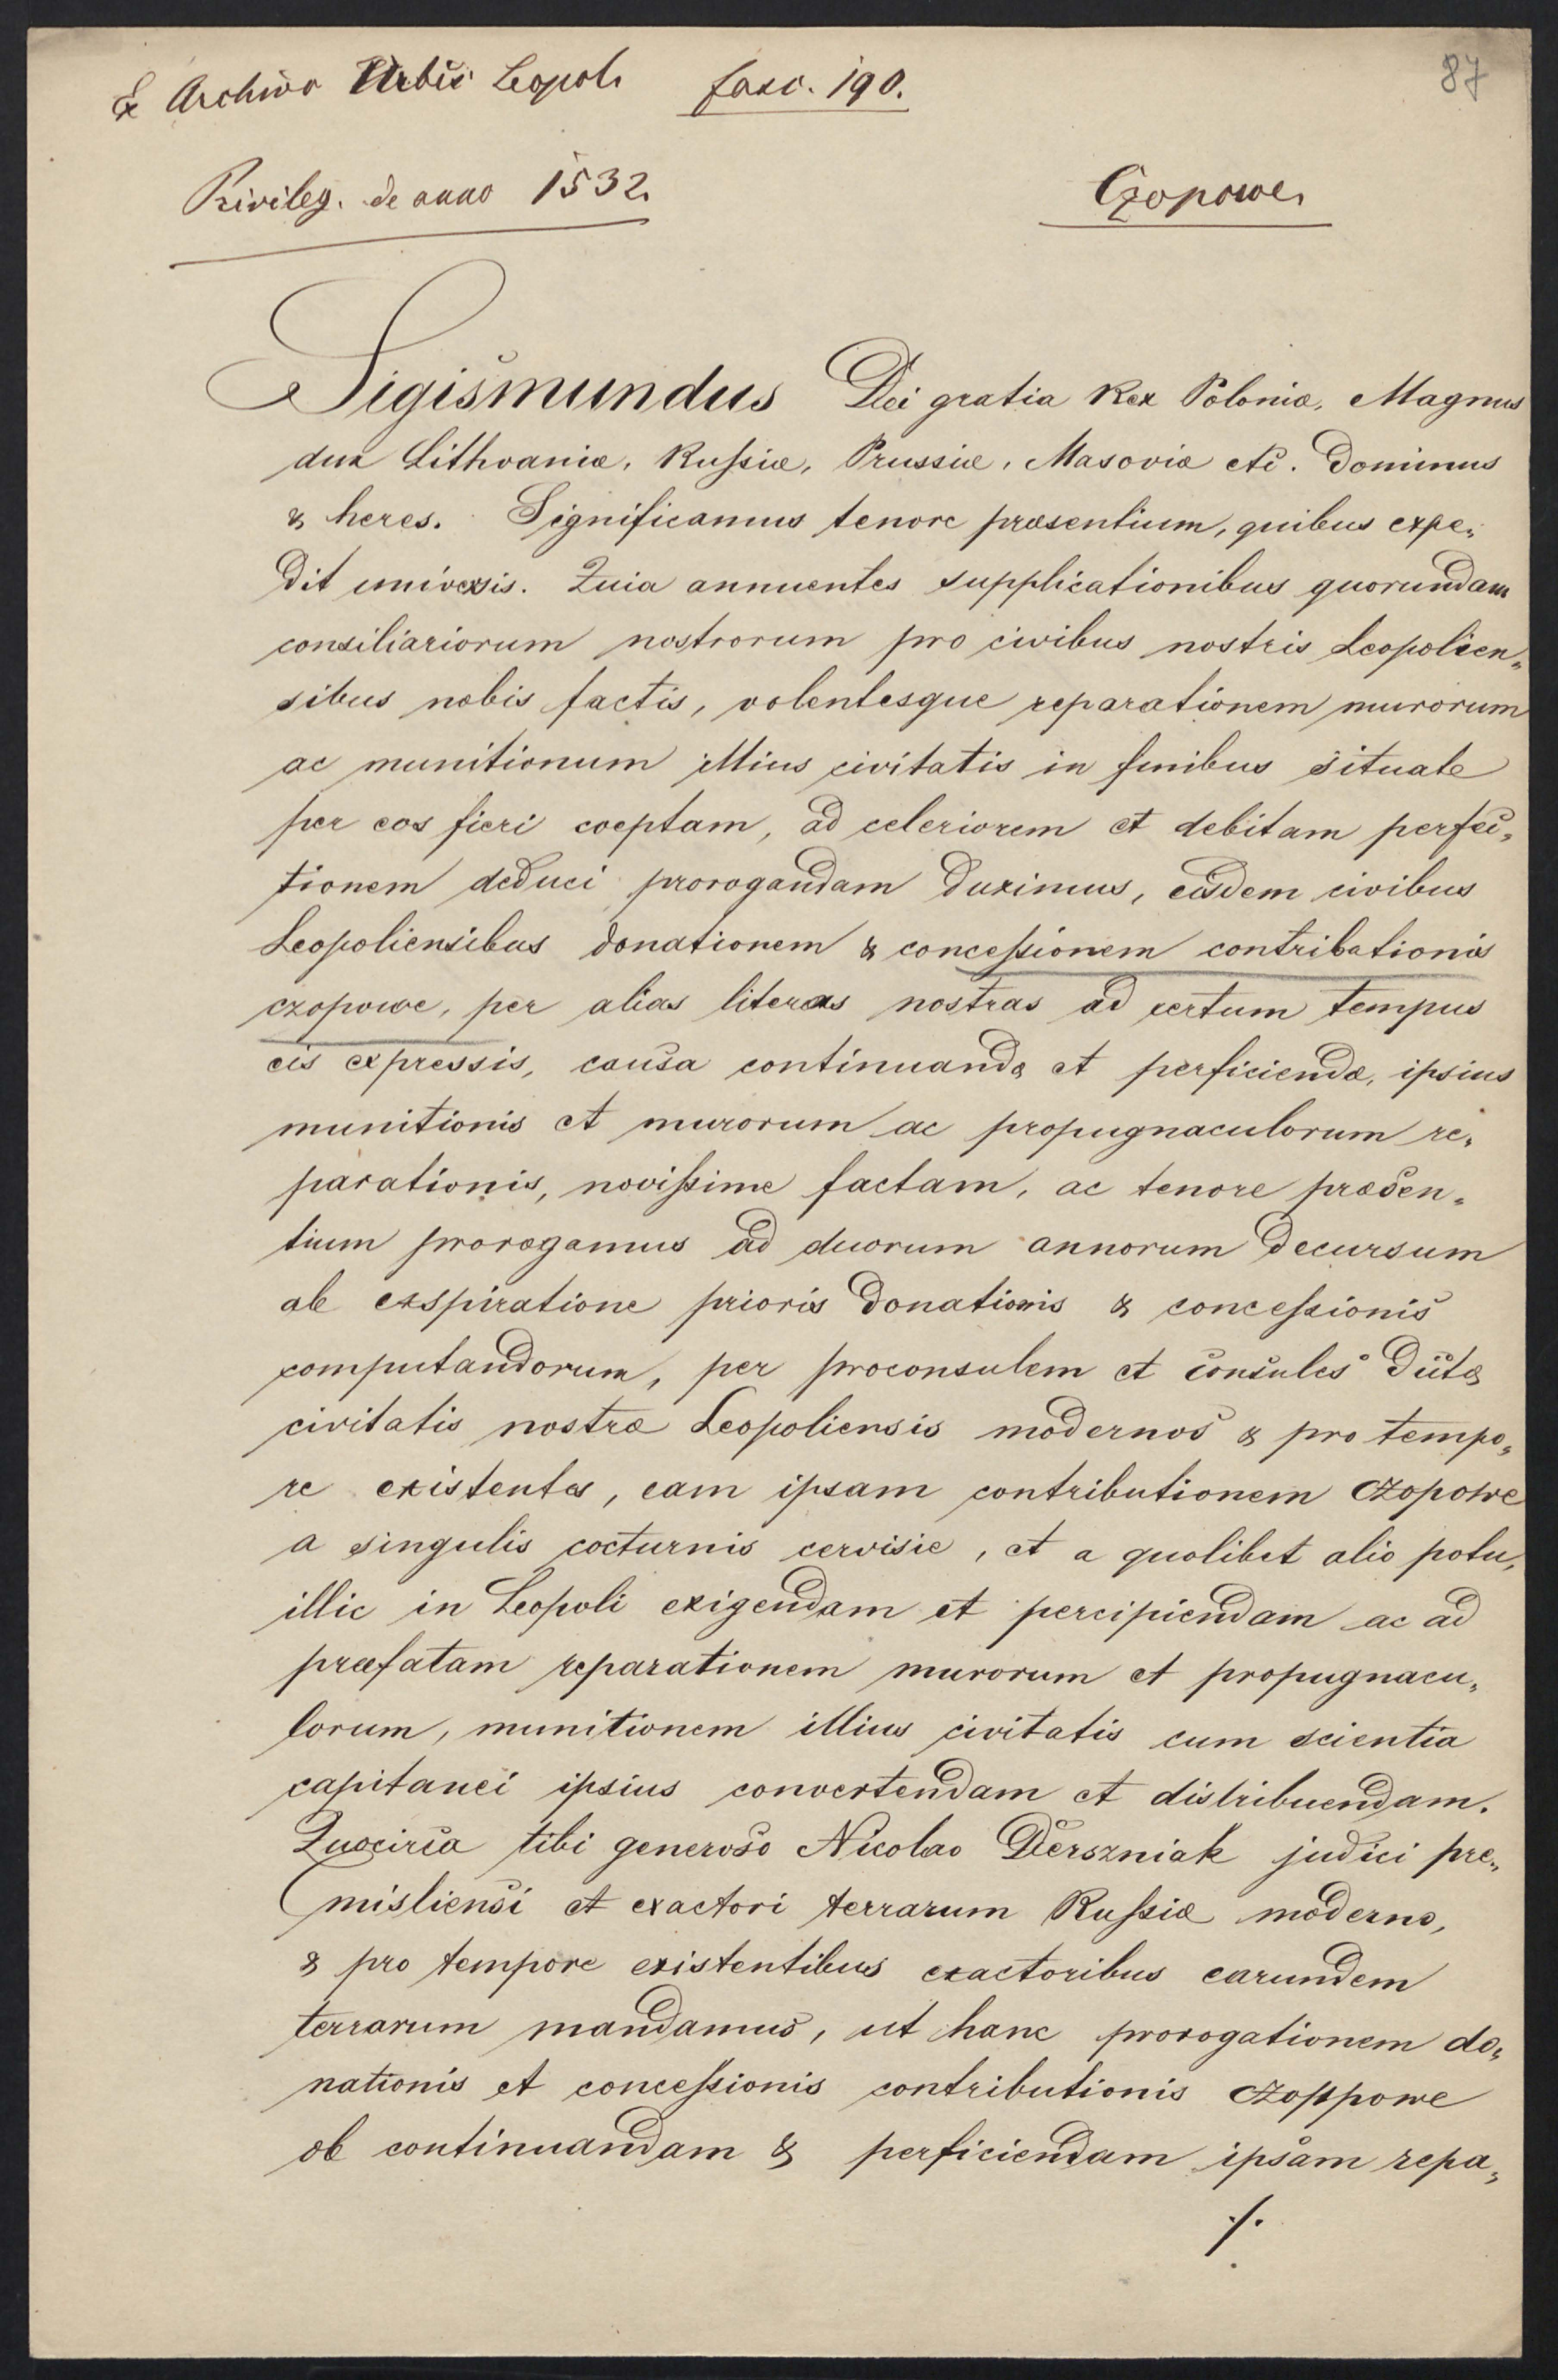 Ex Archivo Urbis Leopoli fasc. 190.
87
Privileg. de anno 1532.
Czopowe.
Sigismundus Dei gratia Rex Poloniæ, Magnus
dux Lithvaniæ, Russiæ, Prussiæ, Masoviæ etc. Dominus
& heres. Significamus tenore præsentium, quibus expe„
dit universis. Quia annuentes supplicationibus quorundam
consiliariorum nostrorum pro civibus nostris Leopolien„
sibus nobis factis, volentesque reparationem murorum
ac munitionum illius civitatis in finibus situate
per eos fieri coeptam, ad celeriorem et debitam perfec„
tionem deduci prorogandam duximus, eisdem civibus
Leopoliensibus donationem & concessionem contributionis
czopowe, per alias literas nostras ad certum tempus
eis expressis, causa continuandæ et perficiendæ, ipsius
munitionis et murorum ac propugnaculorum re„
parationis, novissime factam, ac tenore præsen„
tium prorogamus ad duorum annorum decursum
ab exspiratione prioris donationis & concessionis
computandorum, per proconsulem et consules dictæ
civitatis nostræ Leopoliensis modernos & pro tempo„
re existentes, eam ipsam contributionem czopowe
a singulis cocturnis cervisie, et a quolibet alio potu,
illic in Leopoli exigendam et percipiendam ac ad
præfatam reparationem murorum et propugnacu„
lorum, munitionem illius civitatis cum scientia
capitanei ipsius convertendam et distribuendam.
Quocirca tibi generoso Nicolao Derszniak judici pre„
misliensi et exactori terrarum Russiæ moderno,
& pro tempore existentibus exactoribus earundem
terrarum mandamus, ut hanc prorogationem do„
nationis et concessionis contributionis czoppowe
ob continuandam & perficiendam ipsam repa„
./.